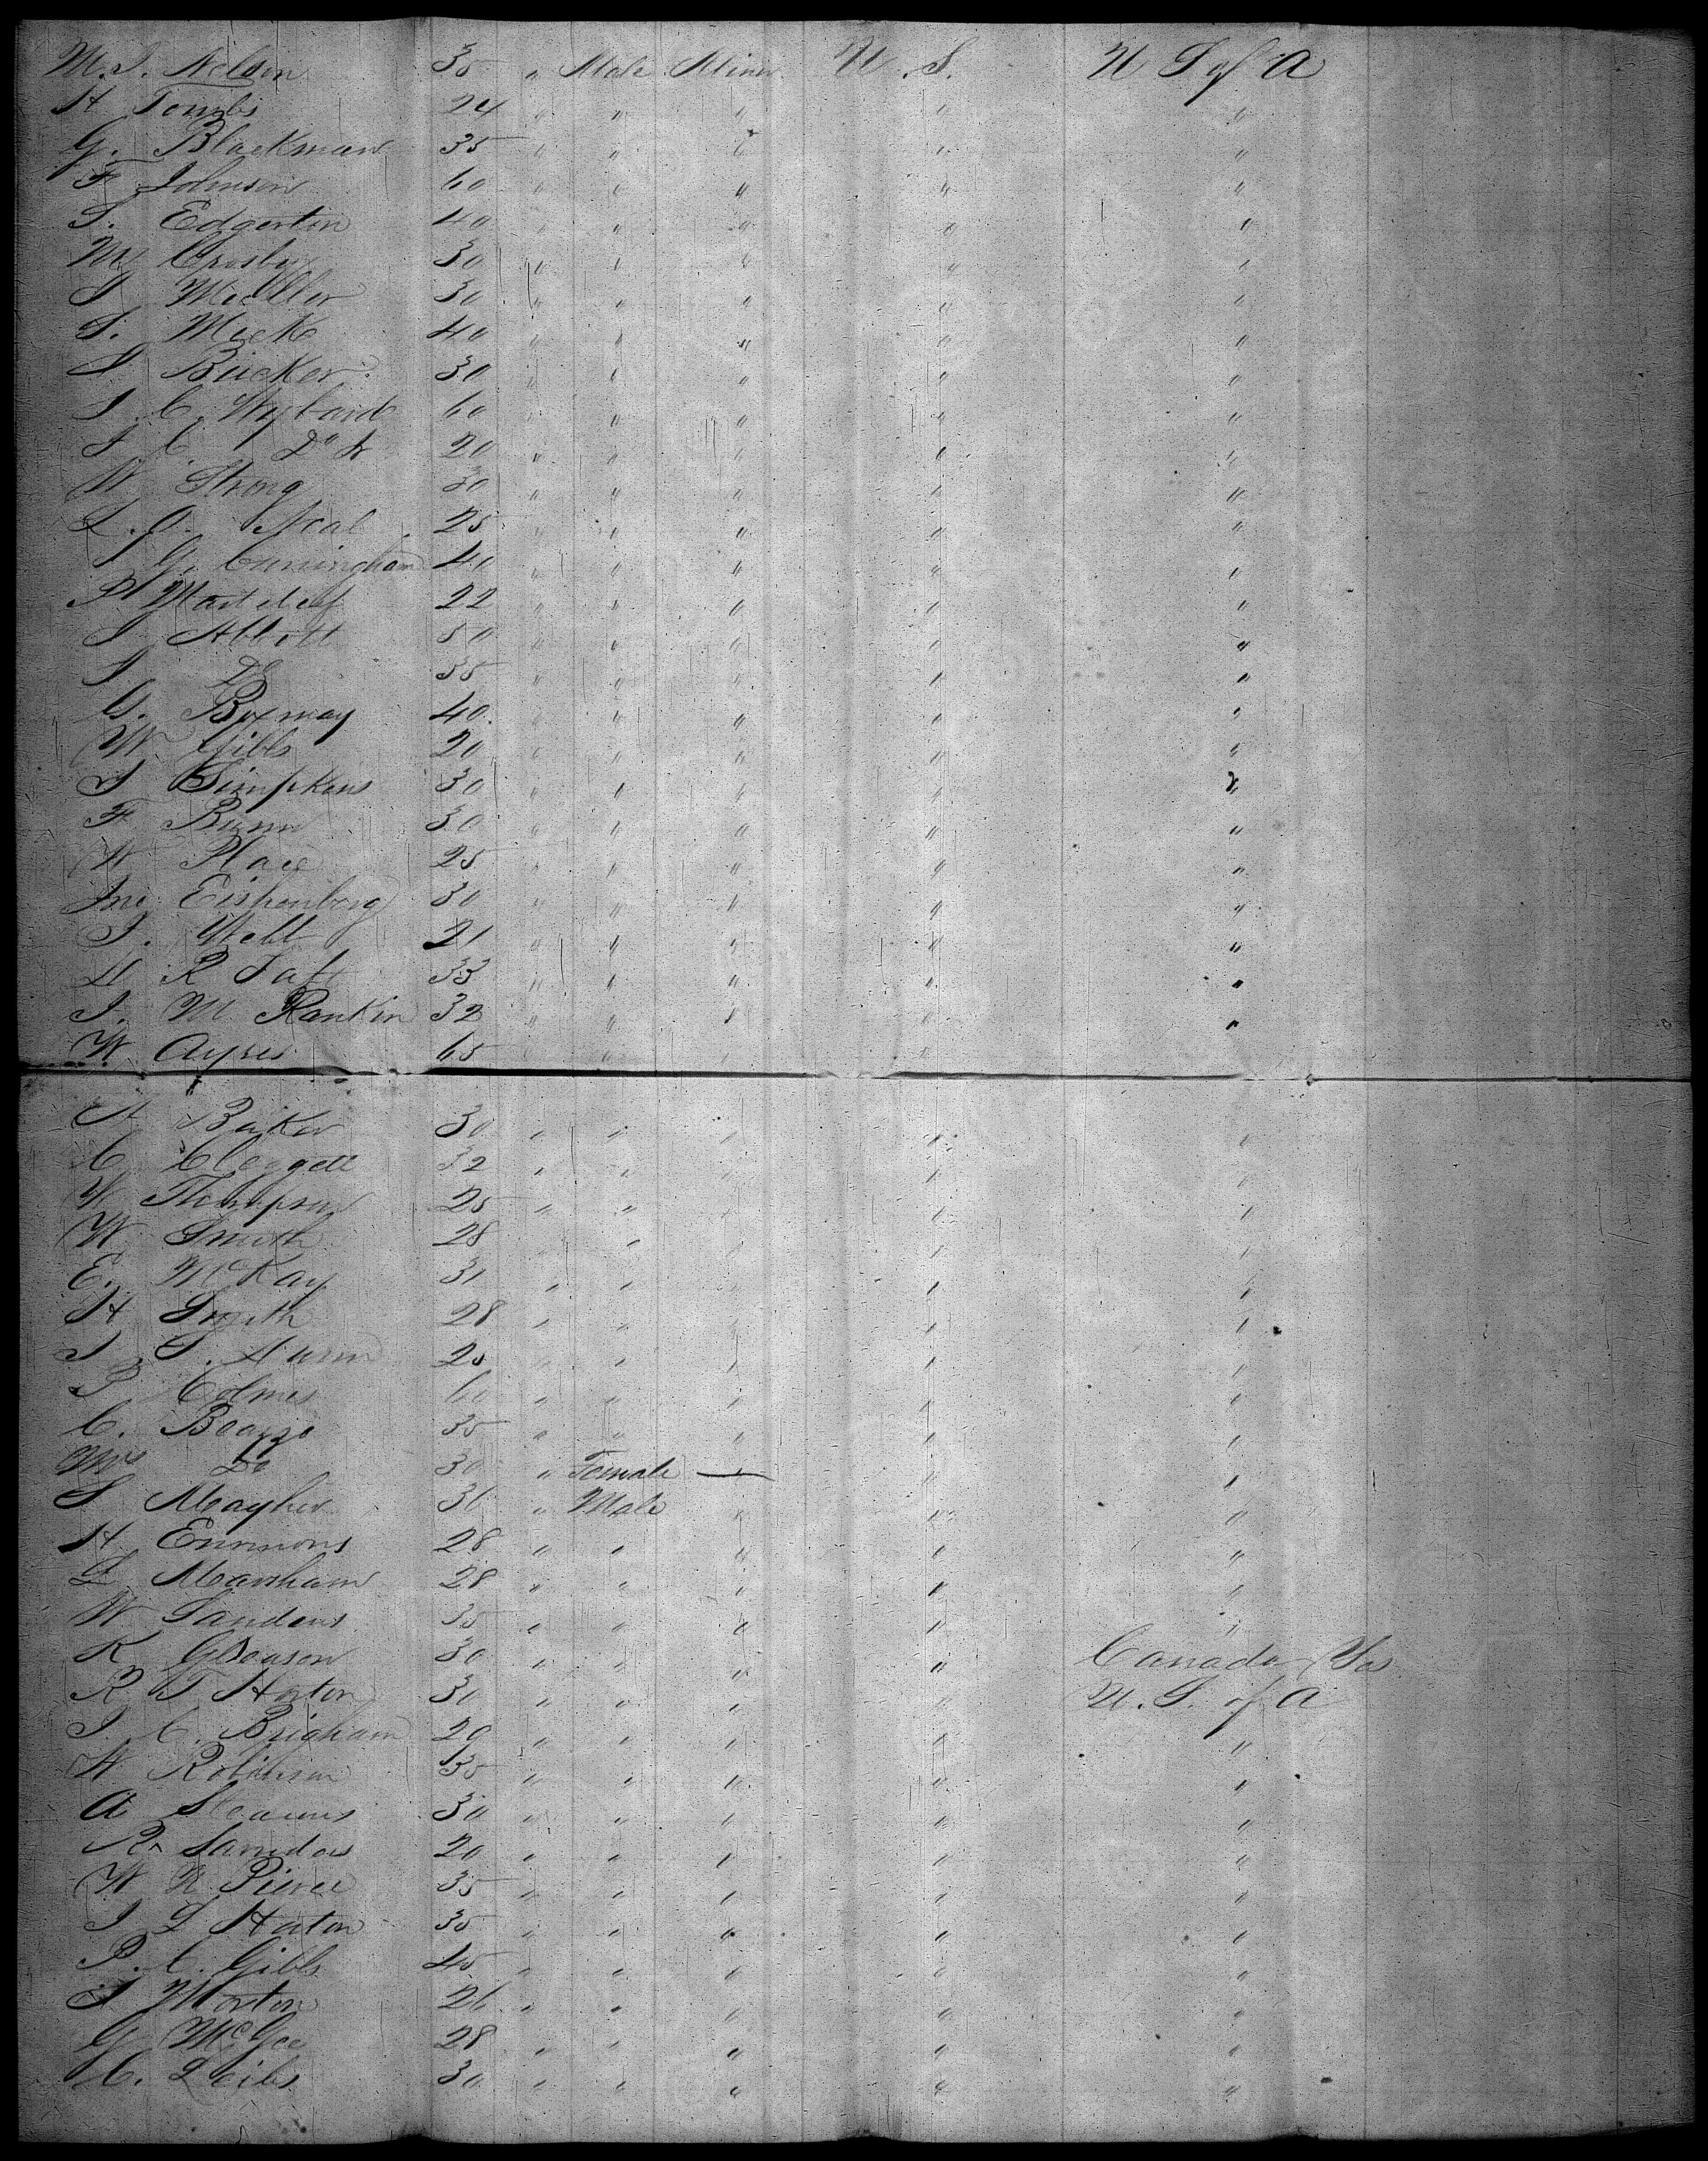 M. S. Nelson 35 " Male Miner U.S. U S of A
H Tombs 24 " " " " "
G. Blackman 35 " " " " "
F Johnson 60 " " " " "
S. Edgerton 40 " " " " "
M Crosby 30 " " " " "
S 30 " " " " "
S. Meek 40 " " " " "
S 30 " " " " "
S. C. 60 " " " " "
S C Do Jr 20 " " " " "
W Strong 30 " " " " "
L. O. Neal 25 " " " " "
S G. Cunningham 40 " " " " "
P 22 " " " " "
S Abbott 50 " " " " "
S Do 35 " " " " "
G. Boxmay 40 " " " " "
W Gibbs 20 " " " " "
S Simpkins 30 " " " " "
F Bunn 30 " " " " "
W Place 25 " " " " "
Jno Eishenberg 30 " " " " "
S. Webb 21 " " " " "
D R Taft 33 " " " " "
J. M Rankin 32 " " " " "
W Ayres 65 " " " "
A Baker 30 " " " " "
C Cleggett 32 " " " " "
W Thompson 25 " " " " "
W Smith 28 " " " "
E. McKay 31 " " " "
H Smith 28 " " " " "
S S. 25 " " " "
P Colmes 60 " " " " "
C. Boayze 35 " " " " "
Mrs Do 30 " Female — " "
S Mayher 36 " Male " " "
H Emmons 28 " " " " "
L Marsham 28 " " " " "
W Sanders 35 " " " " "
K Gleason 30 " " " " Canada
R T Horton 30 " " " " U. S. of A
J. C. Brigham 29 " " " " "
H Robinson 35 " " " " "
A Stearns 30 " " " " "
R. Sandas 20 " " " " "
W R Pierce 35 " " " " "
J L Horton 35 " " " " "
P. C. Gibbs 45 " " " " "
S Morton 26 " " " " "
G McGee 28 " " " " "
C. Leibs 30 " " " " "